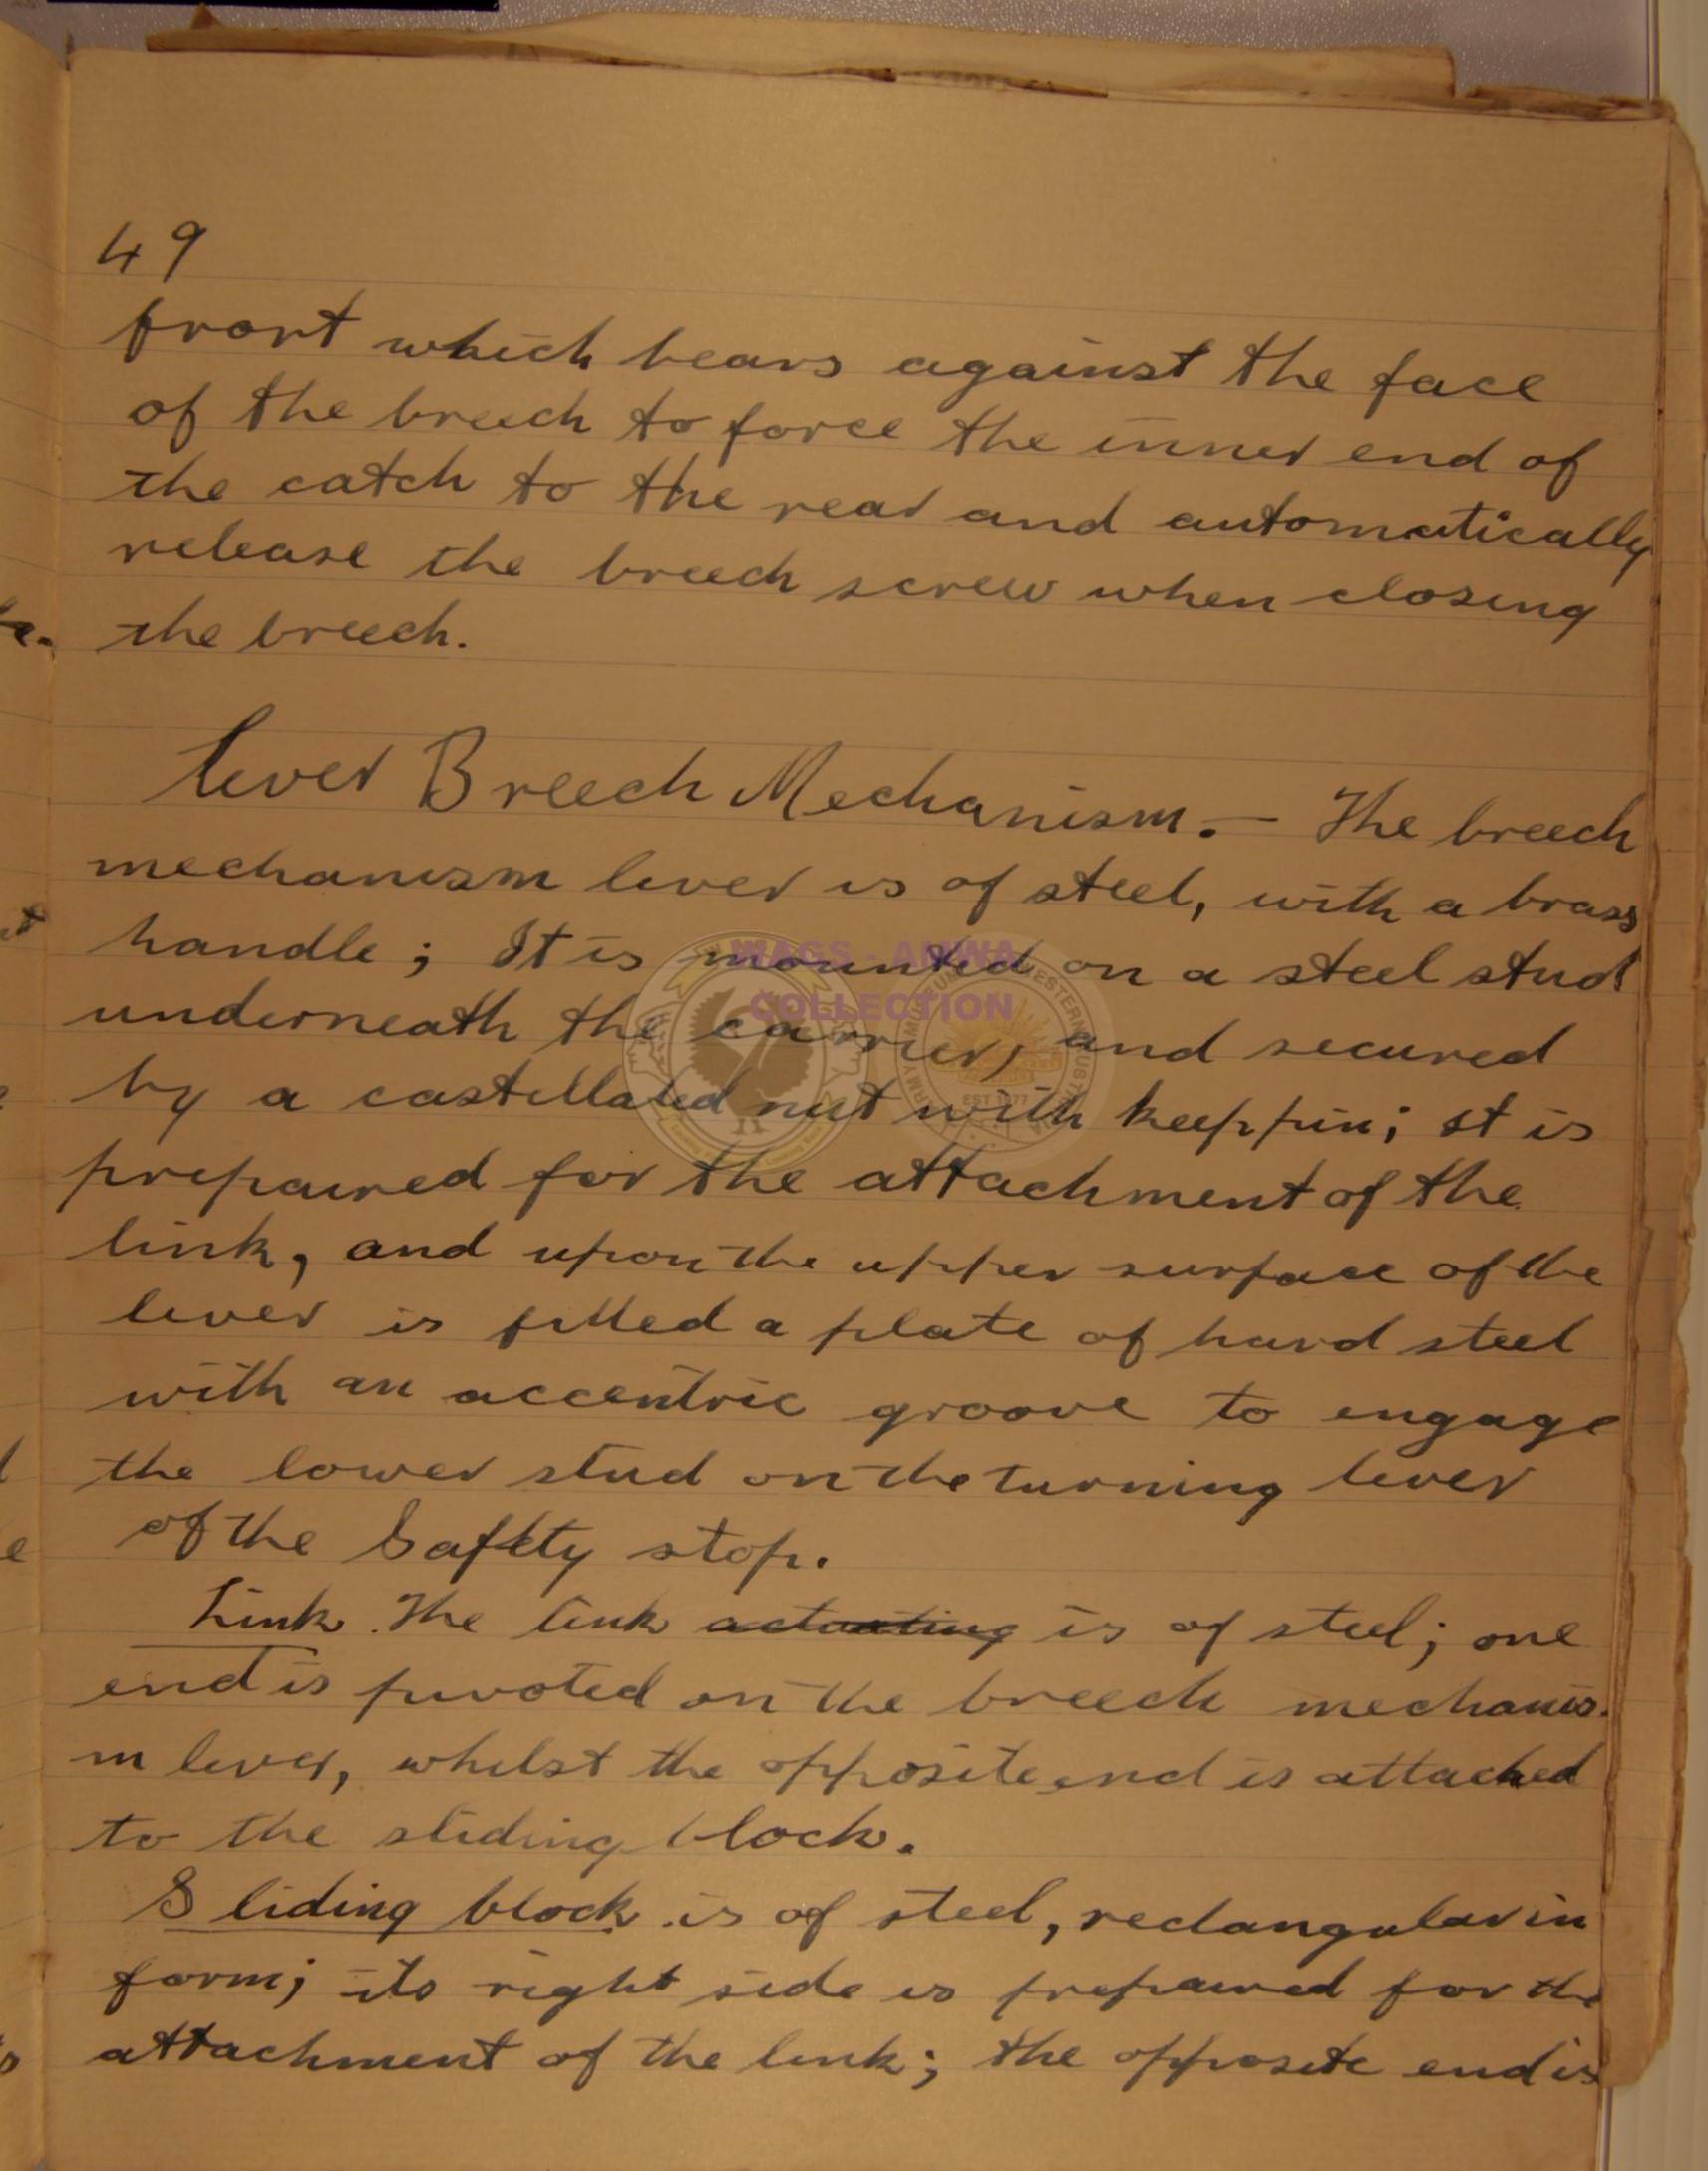 49
front which bears against the face
of the breech to force the inner end of
the catch to the rear and automatically
release the breech screw when closing
the breech.
Lever Breech Mechanism. - The breech
mechanism lever is of steel, with a brass
handle; It is mounted on a steel stud
WAGS - AMWA
COLLECTION
underneath the carrier, and secured
EST 1977
by a castellated nut with keep pin; it is
prepaired for the attachment of the
link, and upon the upper surface of the
lever is fitted a plate of hard steel
with an accentric groove to engage
the lower stud on the turning lever
of the Safety stop.
Link. The link actuating is of steel; one
end is pivoted on the breech mechanis-
m lever, whilst the opposite end is attached
to the sliding block.
Sliding block is of steel, rectangular in
form; its right side is prepaired for the
attachment of the link; the opposite end is